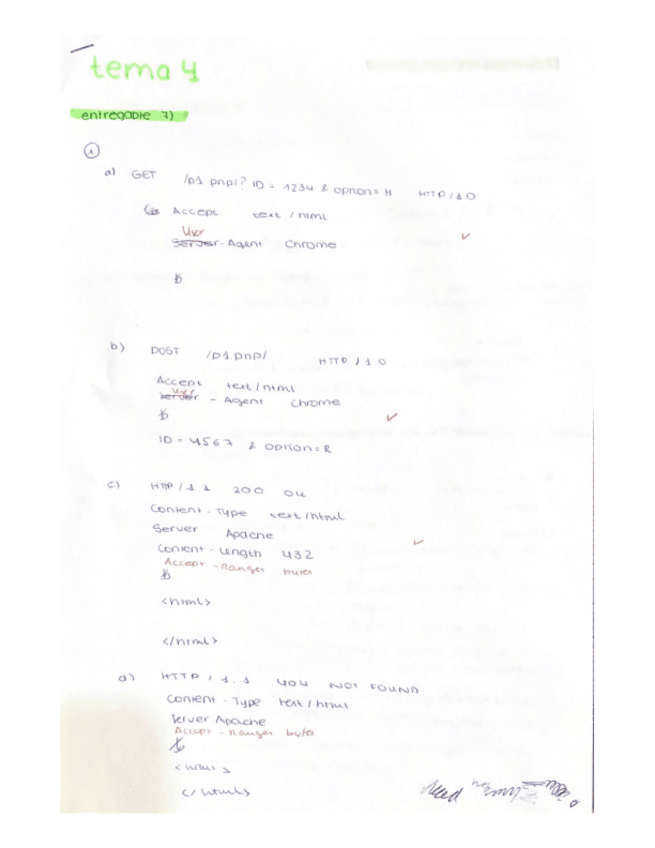 tema 4
entregable 7)
1
a) GET /p1 pnp/? ID = 1234 & option = H HTTP/1 0
Accept text / html
User
Server - Agent Chrome
b
b) POST /p1 pnp/ HTTP / 1 0
Accept text / html
User
Server - Agent Chrome
b
ID = 4567 & option = R
c) HTTP / 1.1 200 OK
Content - Type text / html
Server Apache
Content - Length 432
Accept - Ranges bytes
b
<html>
</html>
d) HTTP / 1.1 404 NOT FOUND
Content - Type text / html
Server Apache
Accept - Ranges bytes
b
<html>
</html>